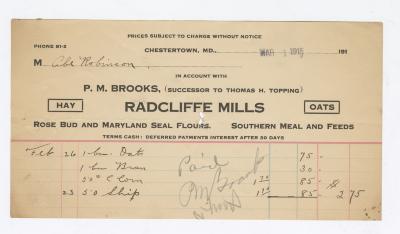 PRICES SUBJECT TO CHARGE WITHOUT NOTICE
PHONE 81-2
CHESTERTOWN, MD., MAR 1 1915 191
M Abe Robinson
IN ACCOUNT WITH
P. M. BROOKS, (SUCCESSOR TO THOMAS H. TOPPING)
HAY RADCLIFFE MILLS OATS
ROSE BUD AND MARYLAND SEAL FLOURS. SOUTHERN MEAL AND FEEDS
TERMS CASH: DEFERRED PAYMENTS INTEREST AFTER 30 DAYS
Feb 26 1 bu. Oats 75
1 bu. Bran 30
50# C Corn 85
23 50 Ship 85 $ 2 75
Paid
PM Brooks